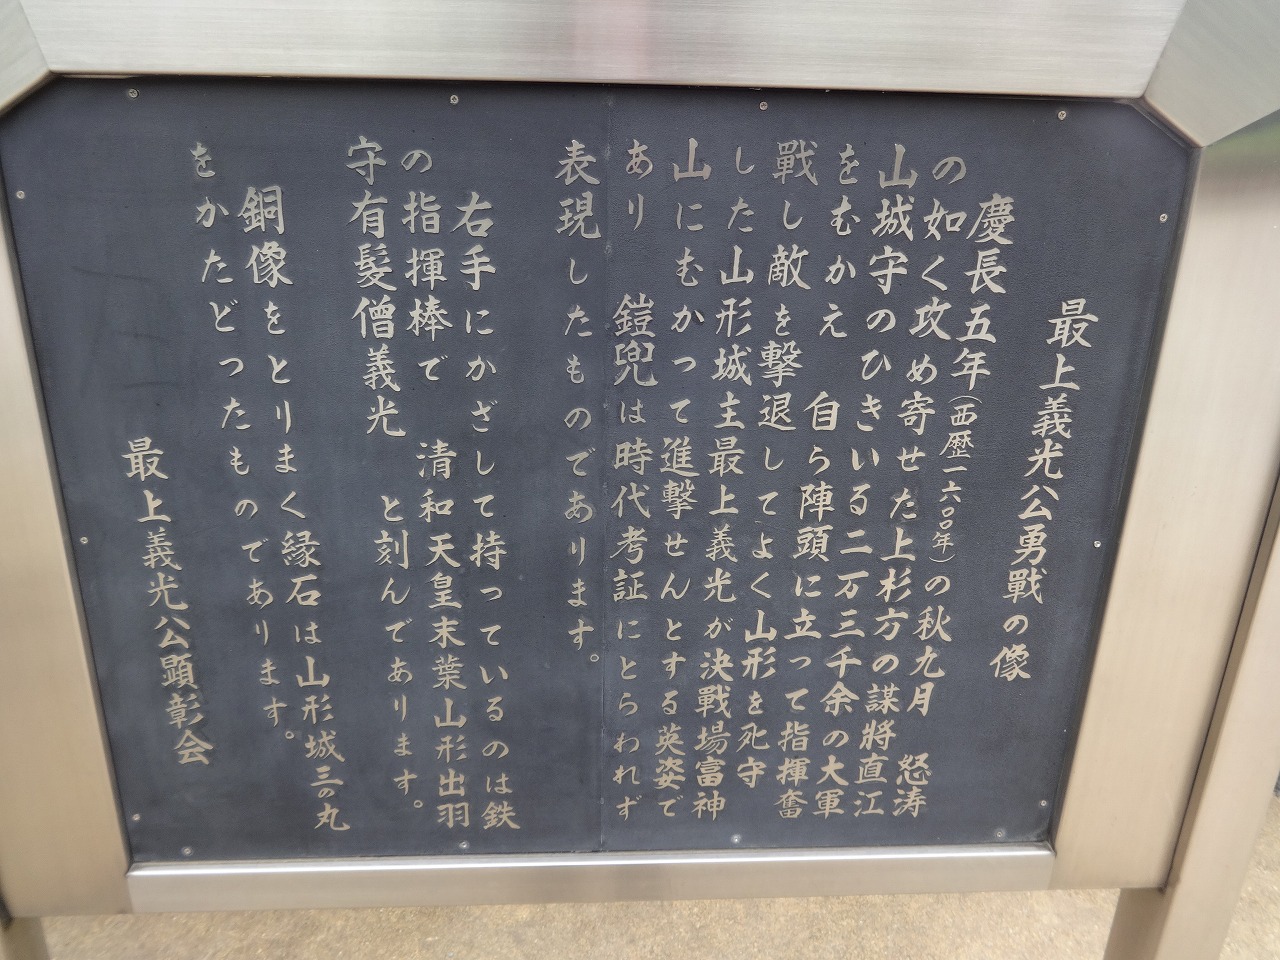 最上義光公勇戰の像
慶長五年(西歴一六〇〇年)の秋九月 怒涛
の如く攻め寄せた上杉方の謀將直江
山城守のひきいる二万三千余の大軍
をむかえ 自ら陣頭に立って指揮奮
戰し敵を擊退してよく山形を死守
した山形城主最上義光が決戰場富神
山にむかって進擊せんとする英姿で
あり 鎧兜は時代考証にとらわれず
表現したものであります。
右手にかざして持っているのは鉄
の指揮棒で 清和天皇末葉山形出羽
守有髮僧義光 と刻んであります。
銅像をとりまく縁石は山形城三の丸
をかたどったものであります。
最上義光公顕彰会